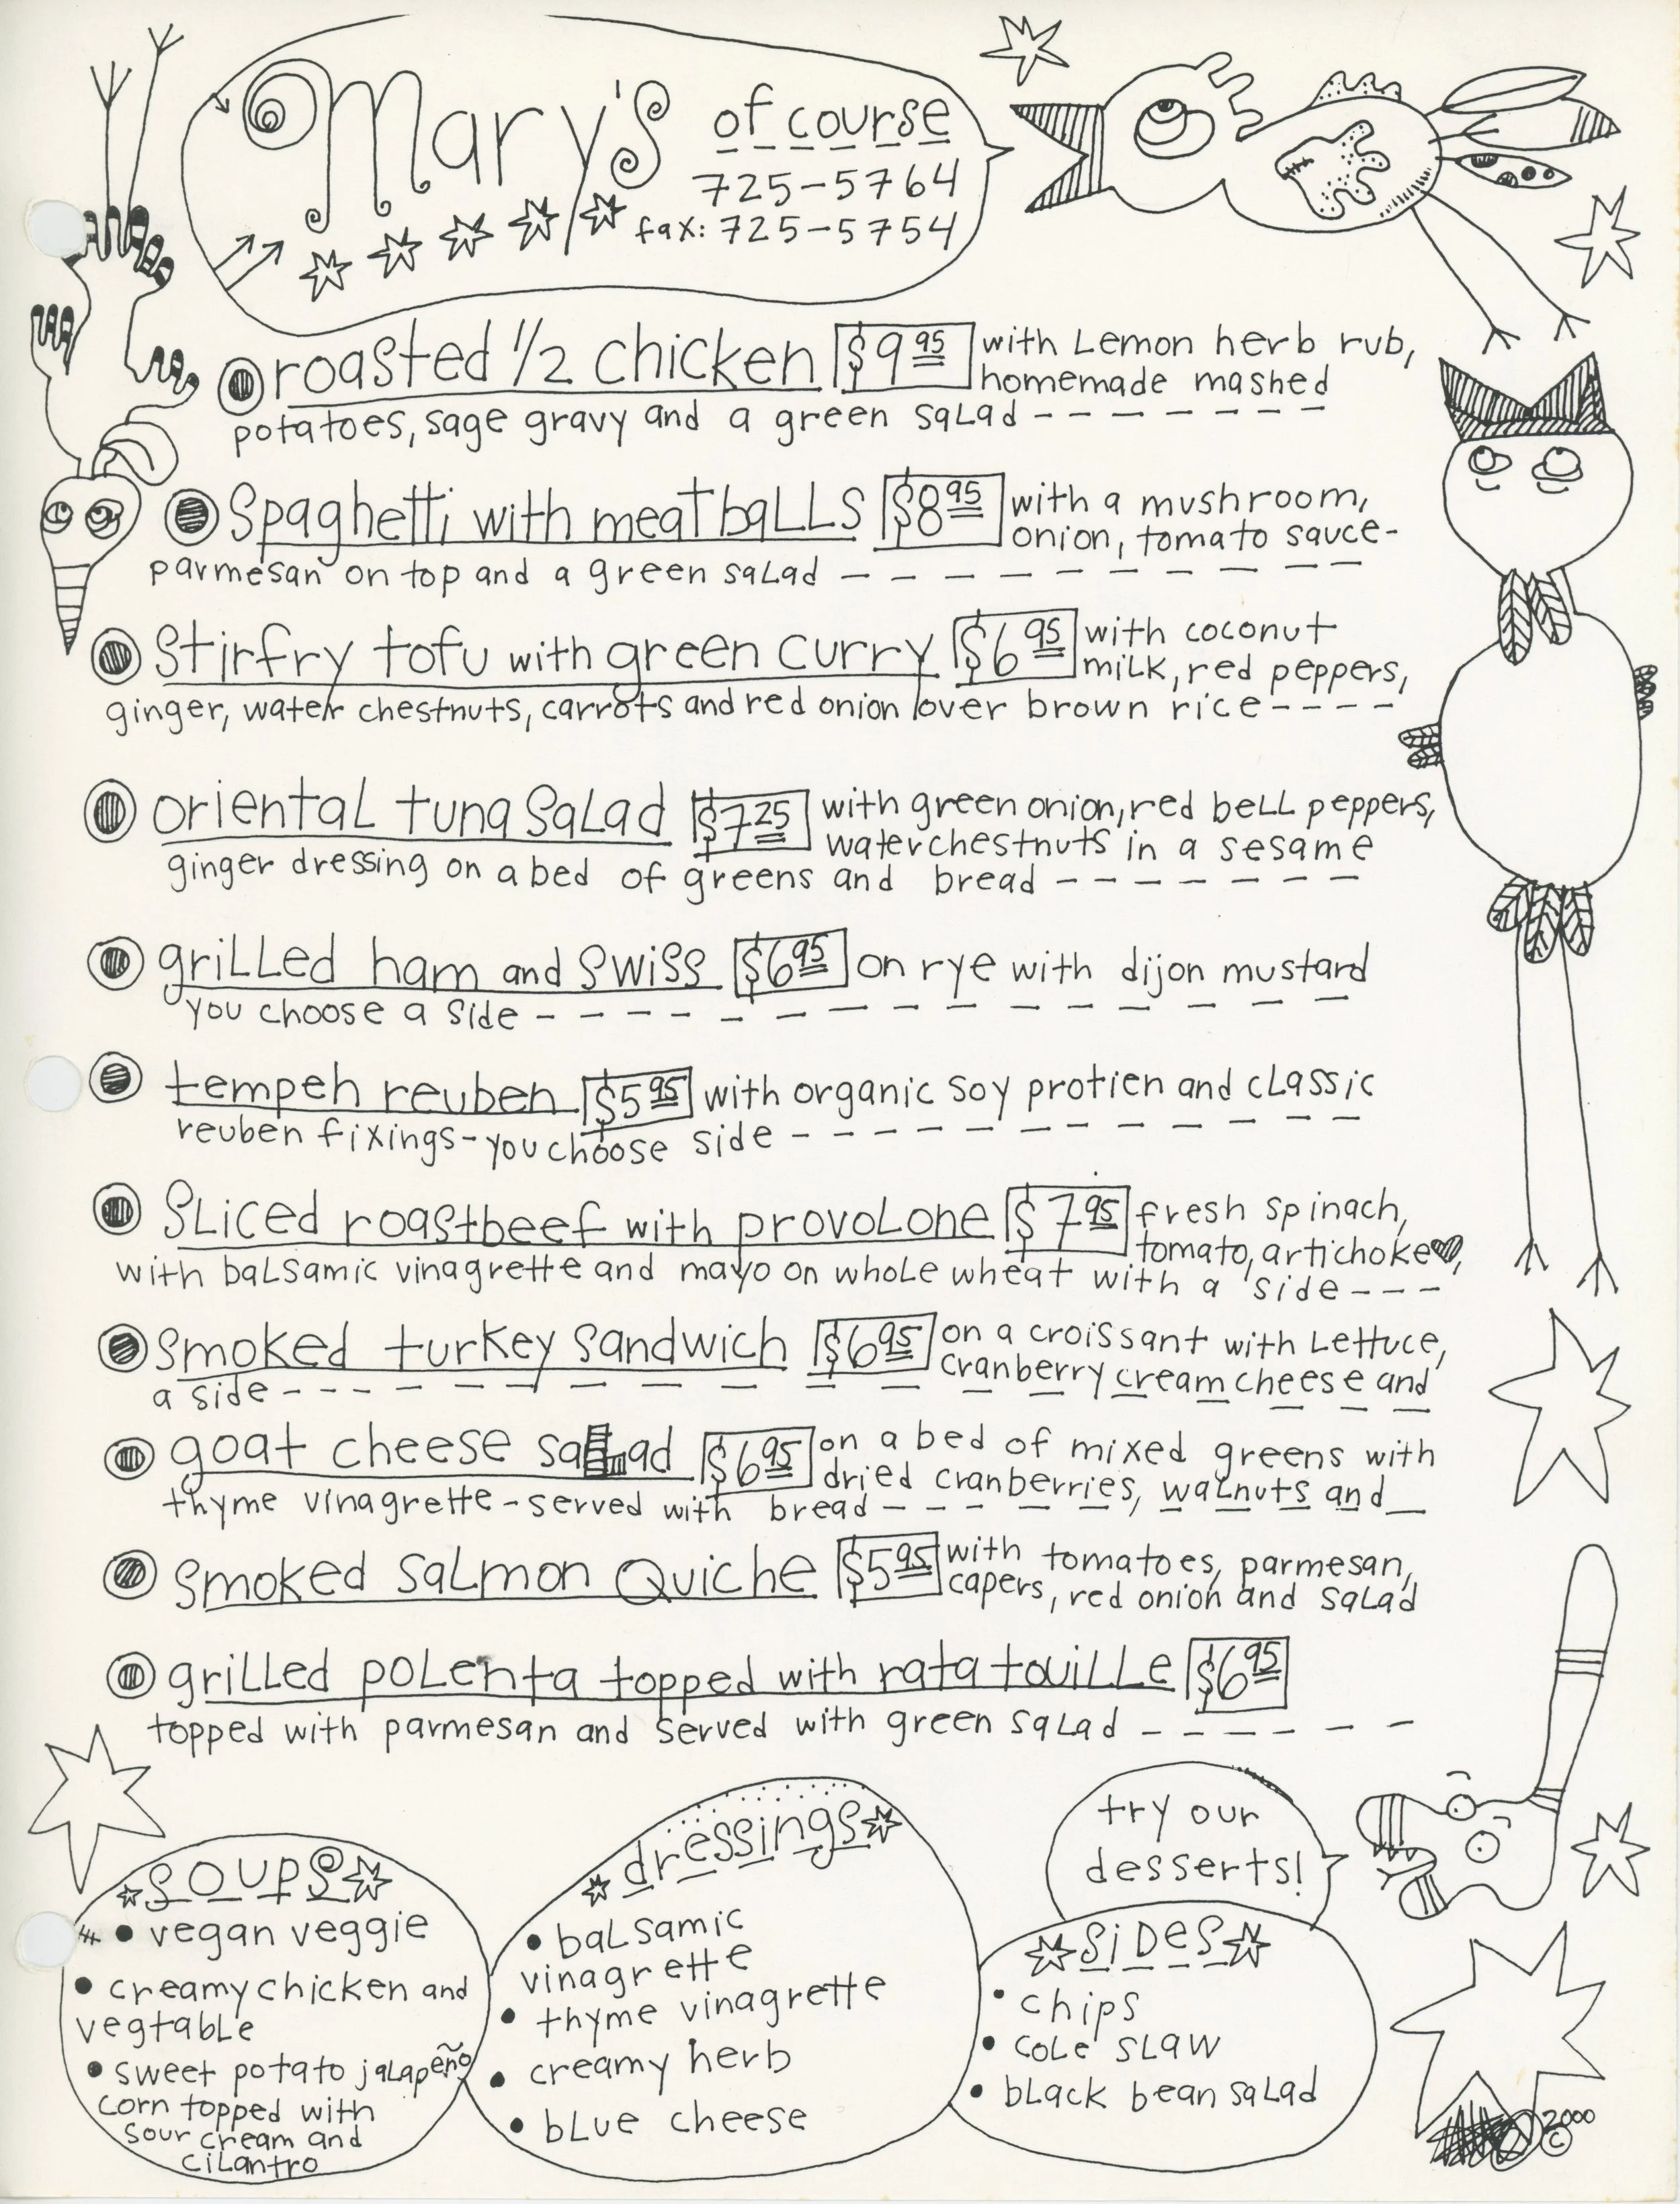 Mary's of course
725-5764
fax: 725-5754
roasted 1/2 chicken $9.95 with Lemon herb rub,
homemade mashed
potatoes, sage gravy and a green salad
Spaghetti with meatballs $8.95 with a mushroom,
onion, tomato sauce-
parmesan on top and a green salad
Stirfry tofu with green curry $6.95 with coconut
milk, red peppers,
ginger, water chestnuts, carrots and red onion over brown rice
oriental tuna salad $7.25 with green onion, red bell peppers,
waterchestnuts in a sesame
ginger dressing on a bed of greens and bread
grilled ham and swiss $6.95 on rye with dijon mustard
you choose a side
tempeh reuben $5.95 with organic soy protien and classic
reuben fixings-you choose side
Sliced roastbeef with provolone $7.95 fresh spinach,
tomato, artichoke ♥,
with balsamic vinagrette and mayo on whole wheat with a side
smoked turkey sandwich $6.95 on a croissant with Lettuce,
cranberry cream cheese and
a side
goat cheese salad $6.95 on a bed of mixed greens with
dried cranberries, walnuts and
thyme vinagrette-served with bread
smoked salmon Quiche $5.95 with tomatoes, parmesan,
capers, red onion and salad
grilled polenta topped with ratatouille $6.95
topped with parmesan and served with green salad
soups
• vegan veggie
• creamy chicken and
vegtable
• sweet potato jalapeño
corn topped with
sour cream and
cilantro
dressings
• balsamic
vinagrette
• thyme vinagrette
• creamy herb
• blue cheese
try our
desserts!
sides
• chips
• cole slaw
• black bean salad
2000
©